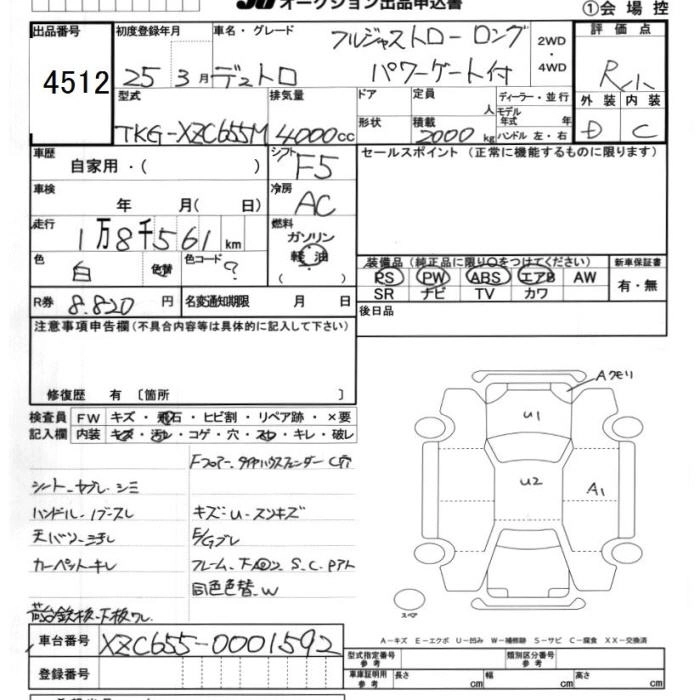 オークション出品申込書
①会場控
出品番号
4512
初度登録年月
25 3月
車名・グレード
デュトロ
フルジャストロー ロング
パワーゲート付
2WD・4WD
評価点
R
外装 内装
D C
型式
TKG-XZC655M
排気量
4000cc
ドア
形状
定員 人
積載 2000kg
ディーラー・並行
モデル年式 年
ハンドル 左・右
車歴
自家用・( )
シフト
F5
セールスポイント(正常に機能するものに限ります)
車検
年 月( 日)
冷房
AC
走行
1万8千561km
燃料
ガソリン
軽油
( )
色
白
色替
色コード
?
装備品(純正品に限り○をつけてください)
PS PW ABS エアB AW
SR ナビ TV カワ
新車保証書
有・無
R券
8.820円
名変通知期限 月 日
後日品
注意事項申告欄(不具合内容等は具体的に記入して下さい)
修復歴 有〔箇所 〕
検査員記入欄
FW キズ・飛石・ヒビ割・リペア跡・×要
内装 キズ・汚レ・コゲ・穴・スレ・キレ・破レ
Fフロアー、タイヤハウスフェンダーC穴
シート、ヤブレ、シミ
ハンドル、
キズ:U、スンキズ
天バリ、ヨゴレ
E/Gブレ
カーペットキレ
フレーム、下回り、S、C、Pアト
同色色替、W
荷台鉄板、下板ワレ
Aクモリ
U1
U2
A1
スペア
A-キズ E-エクボ U-凹み W-補修跡 S-サビ C-腐食 XX-交換済
車台番号
XZC655-0001592
登録番号
型式指定番号 参考
類別区分番号 参考
車庫証明用 参考
長さ cm
幅 cm
高さ cm